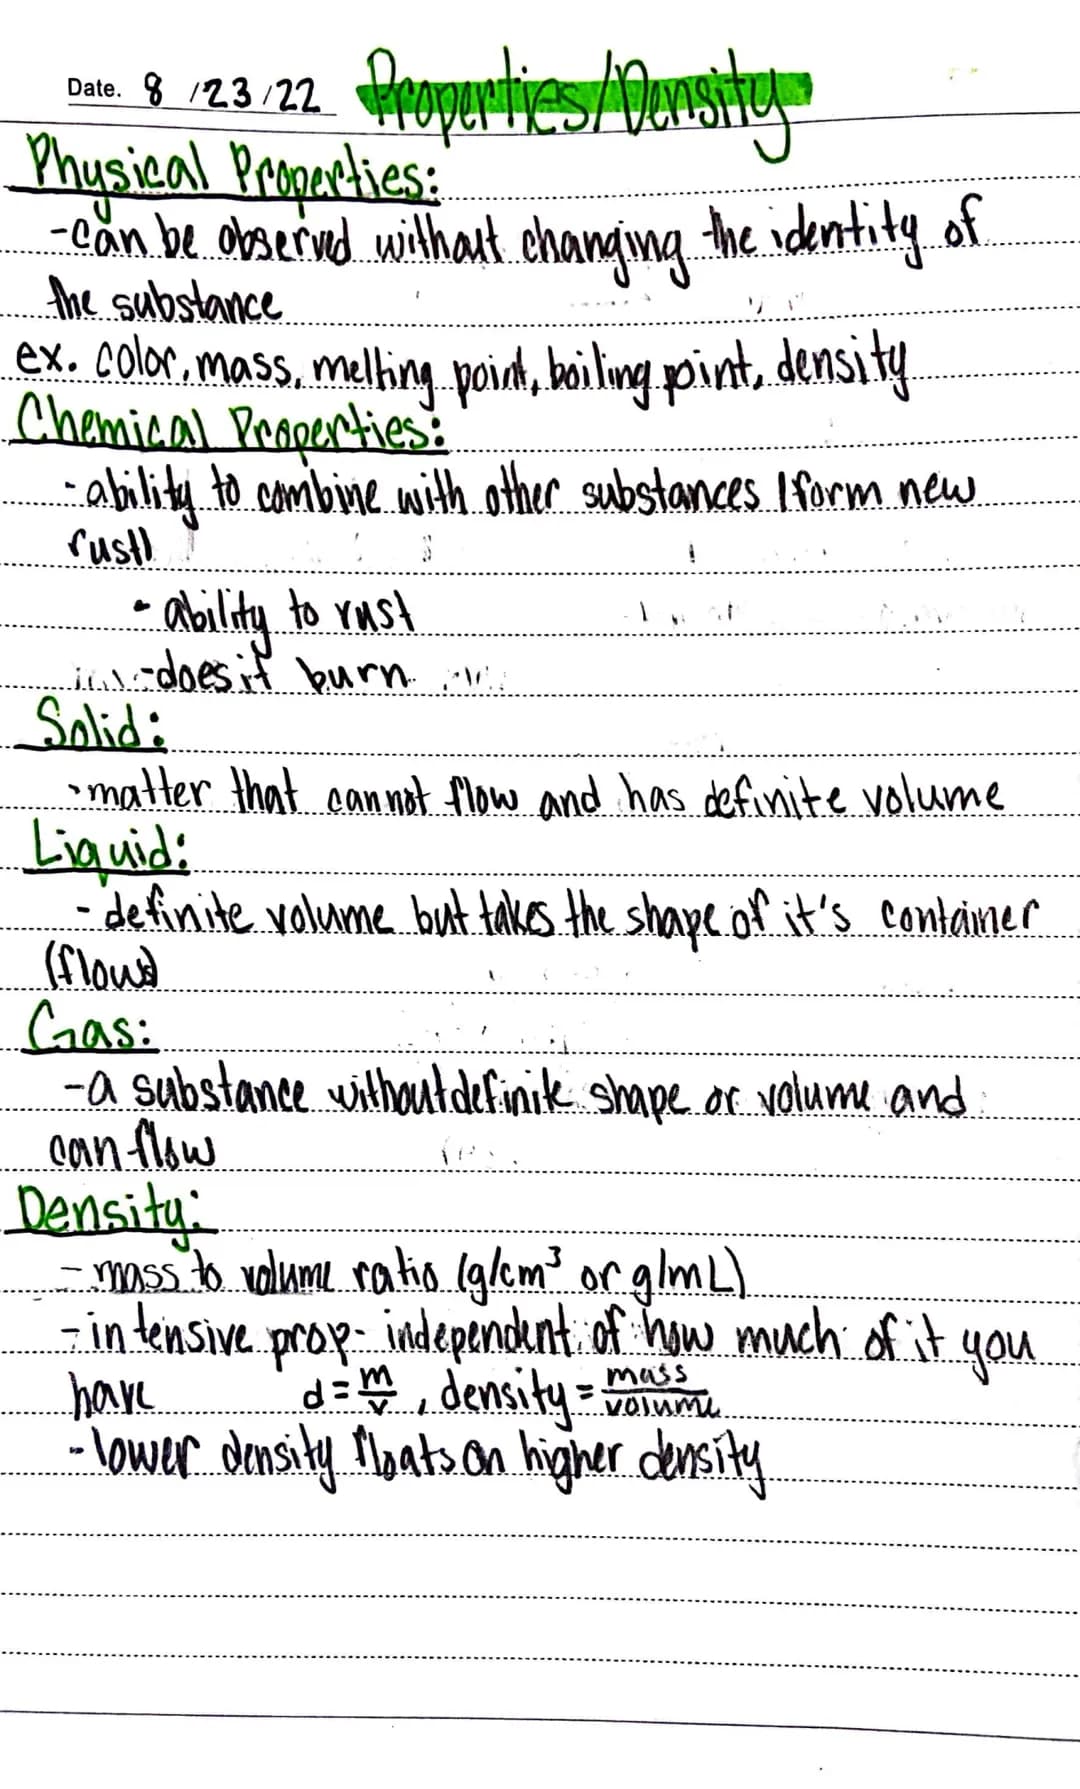 Date. 8 /23/22 Properties/Density
Physical Properties:
-can be observed without changing the identity of
the substance
ex. color, mass, melting point, boiling point, density
Chemical Properties:
-ability to combine with other substances /form new
rust)
- ability to rust
-does it burn
Solid:
-matter that cannot flow and has definite volume
Liquid:
- definite volume but takes the shape of it's container
(flows)
Gas:
-a substance without definite shape or volume and
can flow
Density:
- mass to volume ratio (g/cm³ or g/mL)
- intensive prop- independent of how much of it you
have d = m/v, density = mass/volume
- lower density floats on higher density